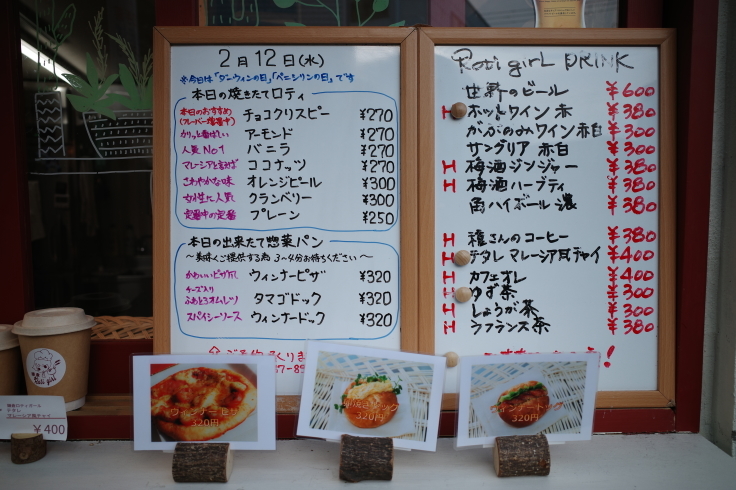 2月12日(水)
※今日は「ダーウィンの日」「ペニシリンの日」です
本日の焼きたてロティ
本日のおすすめ チョコクリスピー ¥270
カリッと香ばしい アーモンド ¥270
人気No1 バニラ ¥270
マレーシアと言えば ココナッツ ¥270
さわやかな味 オレンジピール ¥300
女性に人気 クランベリー ¥300
定番中の定番 プレーン ¥250
本日の出来たて惣菜パン
～美味しくご提供する為 3~4分お待ちください～
かわいいピザ風 ウィンナーピザ ¥320
チーズ入り
ふわとろオムレツ タマゴドック ¥320
スパイシーソース ウィンナードック ¥320
Roti girL DRINK
世界のビール ¥600
H ホットワイン 赤 ¥380
がぶのみワイン 赤白 ¥380
サングリア 赤白 ¥380
H 梅酒ジンジャー ¥380
H 梅酒ハーブティ ¥380
角ハイボール 濃 ¥380
H 福さんのコーヒー ¥380
H テタレ マレーシア風チャイ ¥400
H カフェオレ ¥400
H ゆず茶 ¥300
H しょうが茶 ¥300
H ラフランス茶 ¥380
ウィンナーピザ
320円
320円
ウィンナードック
320円
Roti girl
テタレ
マレーシア風チャイ
¥400